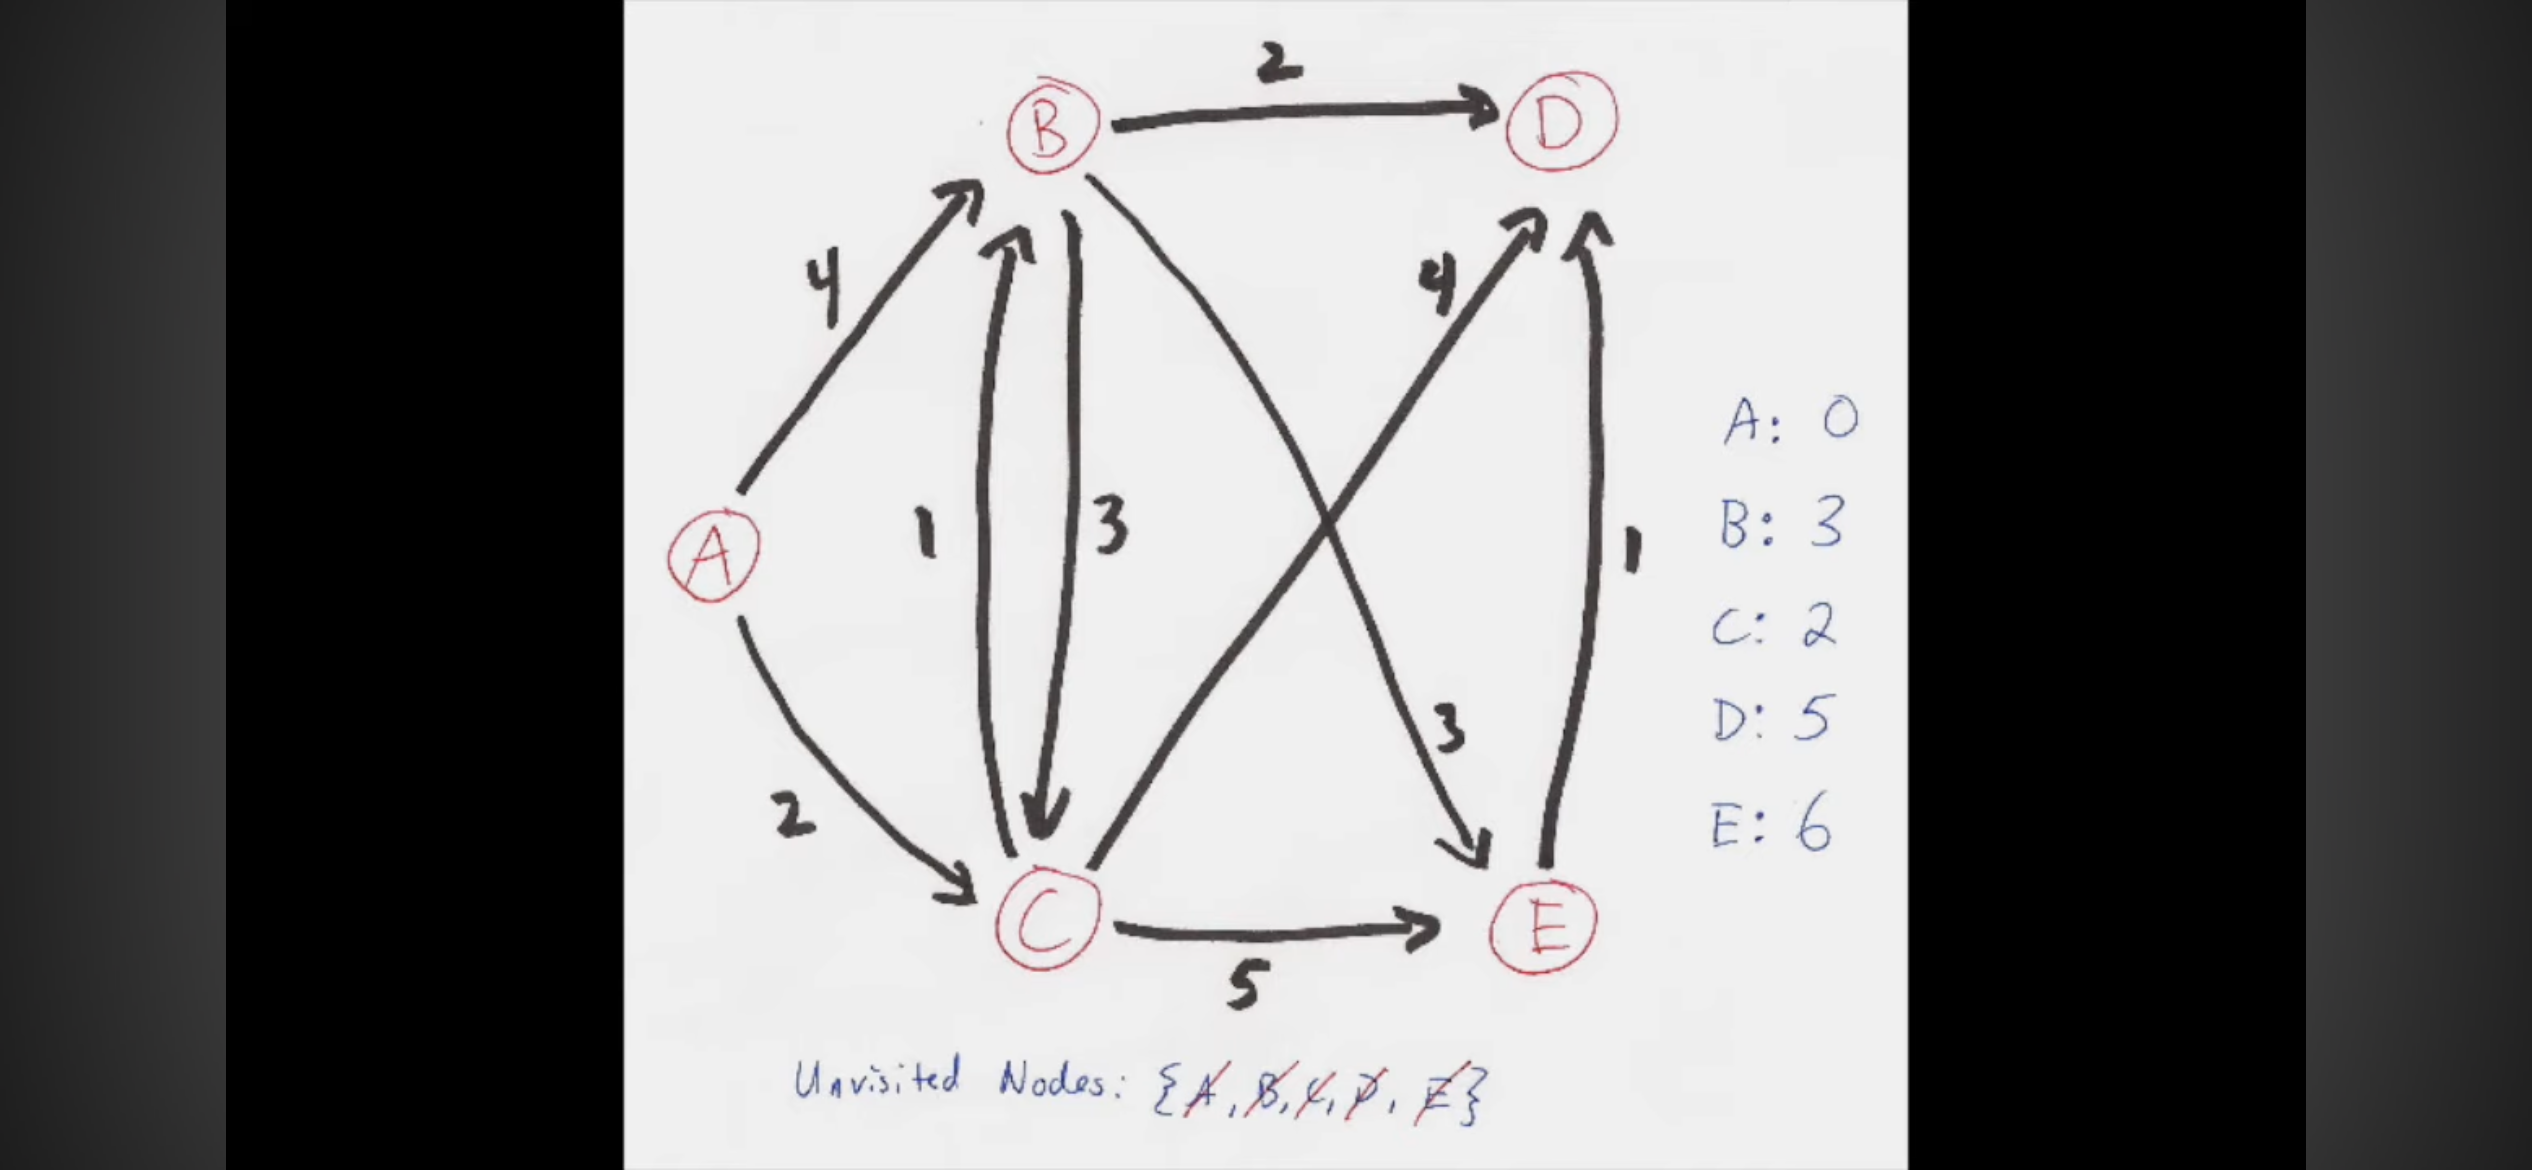 2
B
D
4
4
A
1
3
1
3
2
C
E
5
A: 0
B: 3
C: 2
D: 5
E: 6
Unvisited Nodes: {A, B, C, D, E}